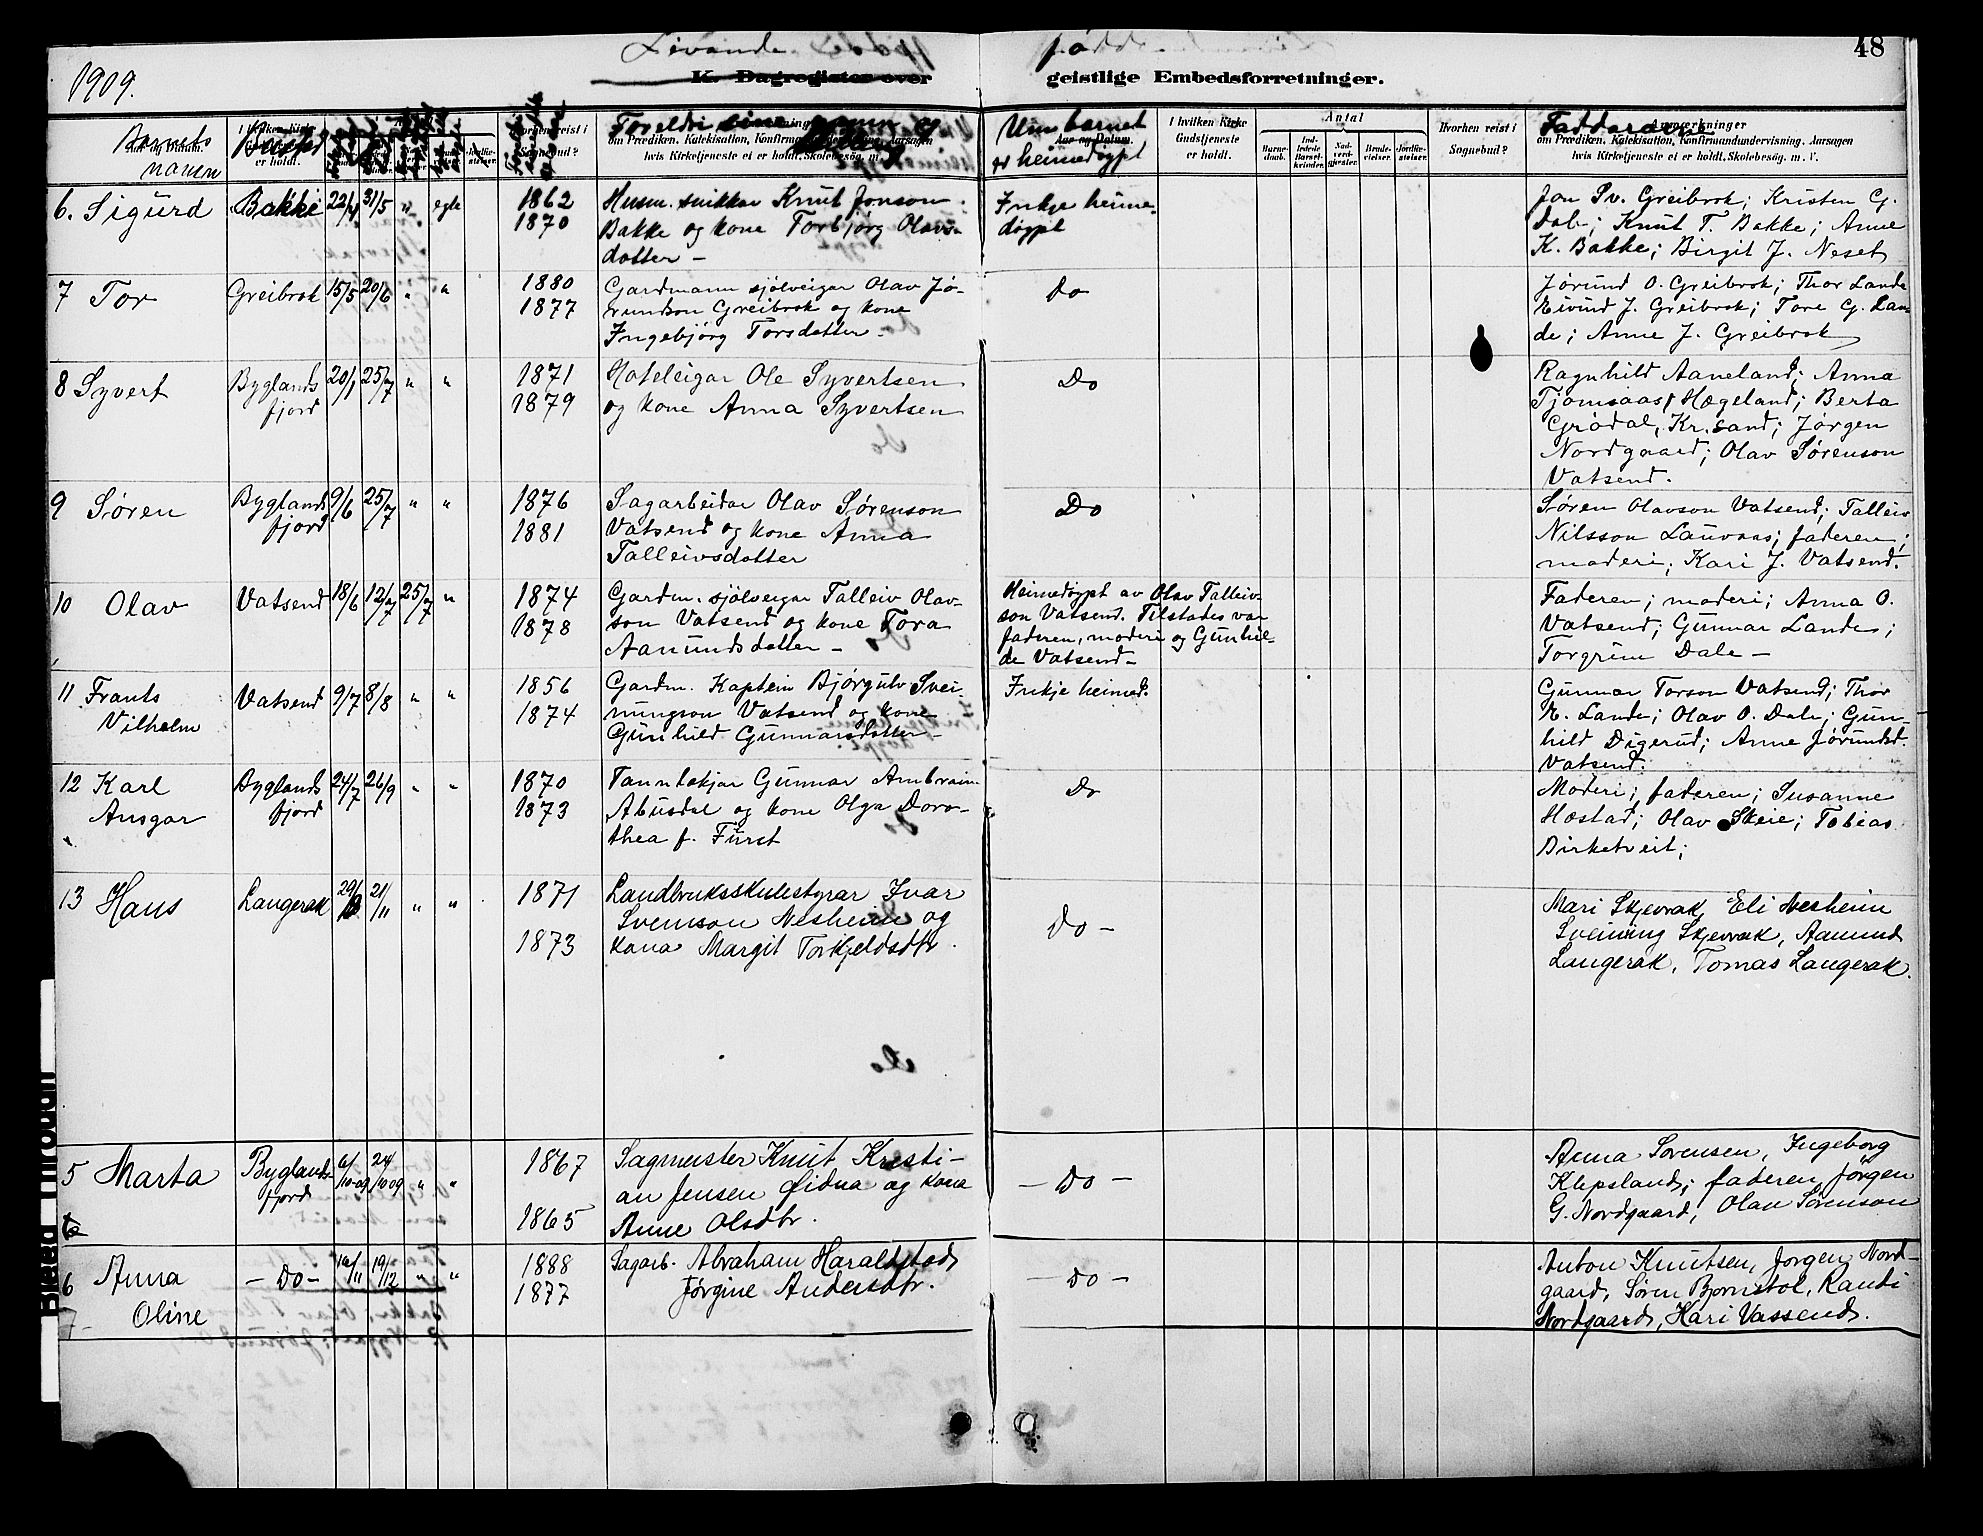 1909.
Levande
fødde
48
K. Dagregister over
geistlige Embedsforretninger.
Barnets
namn
I hvilken Kirke
er holdt.
Bustad
Hvorhen reist i
Sognebud?
Foreldri sine namn og
om Prædiken, Katekisation, Konfirmandundervisning, Aarsagen
hvis Kirketjeneste ei er holdt, Skolebesøg. m. V.
Um barnet
Aar og Datum.
er heimedøypt
I hvilken Kirke
Gudstjeneste
er holdt.
Antal
Barne-
daab.
Ind-
ledede
Barsel-
kvinder.
Nad-
verd-
gjester.
Brude-
vielser.
Jordfæ-
stelser.
Hvorhen reist i
Sognebud?
Fadderarne
Anmærkninger
om Prædiken, Katekisation, Konfirmandundervisning, Aarsagen
hvis Kirketjeneste ei er holdt, Skolebesøg. m. V.
6. Sigurd Bakke 22/4 31/5 " egte 1862 1870
Husm. snikkar Knut Jonson
Bakke og kone Torbjørg Olavs-
dotter –
Inkje heime-
døypt
Jon Sv. Greibrok; Kristen G.
Dale; Knut T. Bakke; Anne
K. Bakke; Birgit J. Neset
7 Tor Greibrok 15/5 20/6 " " 1880 1877
Gardmann sjølveigar Olav Jø-
rundson Greibrok og kone
Ingebjørg Torsdotter –
Do
Jørund O. Greibrok; Thor Lande
Eivind J. Greibrok; Tore G. Lan-
de; Anne J. Greibrok
8 Syvert Byglands
fjord 20/1 25/7 " " 1871 1879
Hoteleigar Ole Syvertsen
og kone Anna Syvertsen
Do
Ragnhild Aaneland; Anna
Tjomsaas, Hægeland; Berta
Grødal, Kr.sand; Jørgen
Nordgaard; Olav Sørenson
Vatsend.
9 Søren Byglands
fjord 9/6 25/7 " " 1876 1881
Sagarbeidar Olav Sørenson
Vatsend og kone Anna
Talleivsdotter
Do
Søren Olavson Vatsend; Talleiv
Nilsson Lauvaas; faderen;
moderi; Kari J. Vatsend.
10 Olav Vatsend 18/6 12/7 25/7 " 1874 1878
Gardm. sjølveigar Talleiv Olav-
son Vatsend og kone Tora
Aanundsdotter –
Heimedøypt av Olav Talleiv-
son Vatsend. Tilstades var
faderen, moderi og Gunhil-
de Vatsend –
Faderen; moderi; Anna O.
Vatsend; Gunnar Lande;
Torgrim Dale –
11 Frants
Vilhelm Vatsend 9/7 8/8 " " 1856 1874
Gardm. Kaptein Bjørgulv Svei-
nungson Vatsend og kone
Gunhild Gunnarsdotter –
Inkje heimed.
Gunnar Torson Vatsend; Thor
E. Lande; Olav O. Dale; Gun-
hild Digerud; Anne Jørundsd.
Vatsend.
12 Karl
Ansgar Byglands
fjord 24/7 26/9 " " 1870 1873
Tannlækjar Gunnar Ambraim
Abusdal og kone Olga Doro-
thea f. Fürst
Do
Moderi; faderen; Susanne
Hostad; Olav Skeie; Tobias
Birketveit;
13 Hans Langerak 29/8 21/11 " " 1871 1873
Landbruksskulestyrar Ivar
Svenson Nesheim og
kona Margit Torkjeldsdtr.
Do –
Mari Skjevrak, Eli Nesheim
Sveinung Skjevrak, Aanund
Langerak, Tomas Langerak.
5 Marta Byglands-
fjord 6/10-09 24/10 09 " " 1867 1865
Sagmester Knut Kristi-
an Jensen Eidna og kona
Anne Olsdtr.
– Do –
Anna Sørensen, Ingeborg
Klepsland; faderen, Jörgen
G. Nordgaard, Olav Sørenson
6 Anna
Oline – Do – 16/11 19/12 " " 1888 1877
Sagarb. Abraham Haraldstad
Jørgine Andersdtr.
– Do –
Anton Knutsen, Jørgen Nord-
gaard, Søren Bjørnstøl, Randi
Nordgaard, Kari Vassend.
7 –